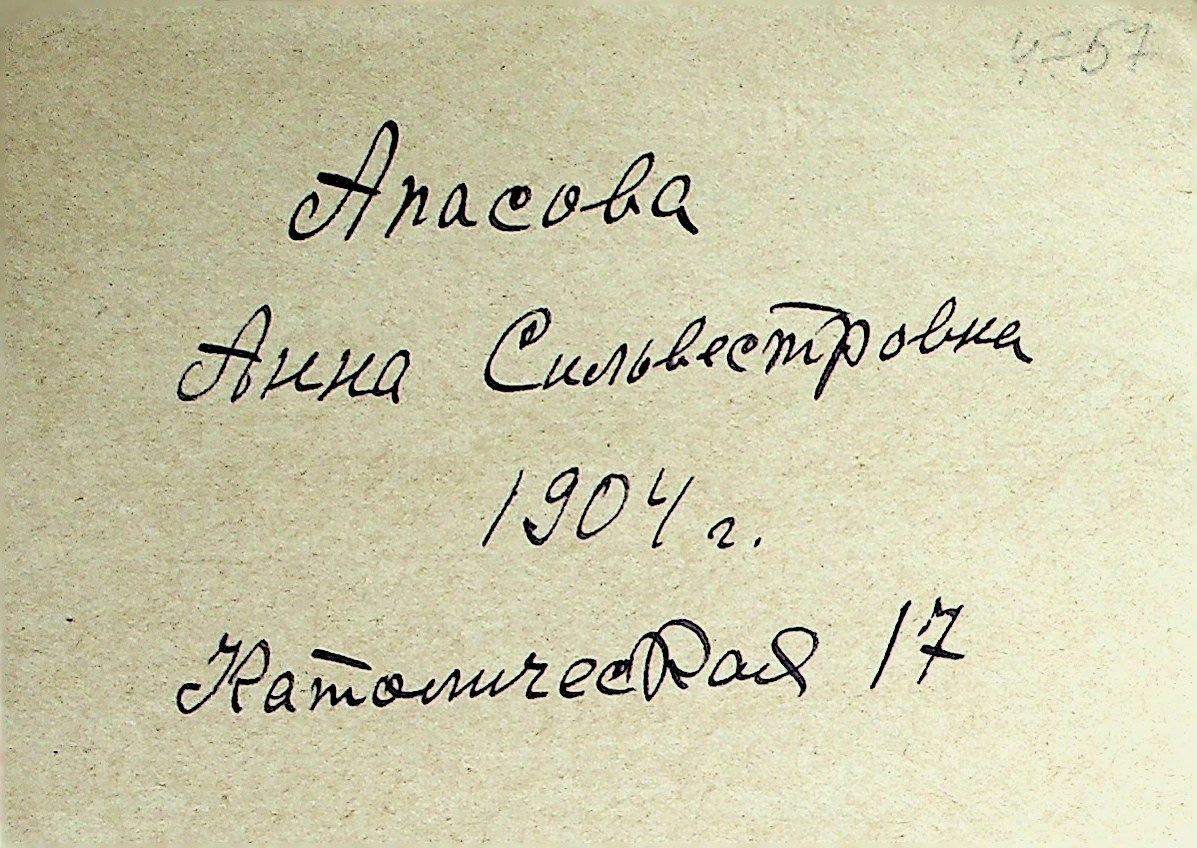 4757
Апасова
Анна Сильвестровна
1904 г.
Католическая 17